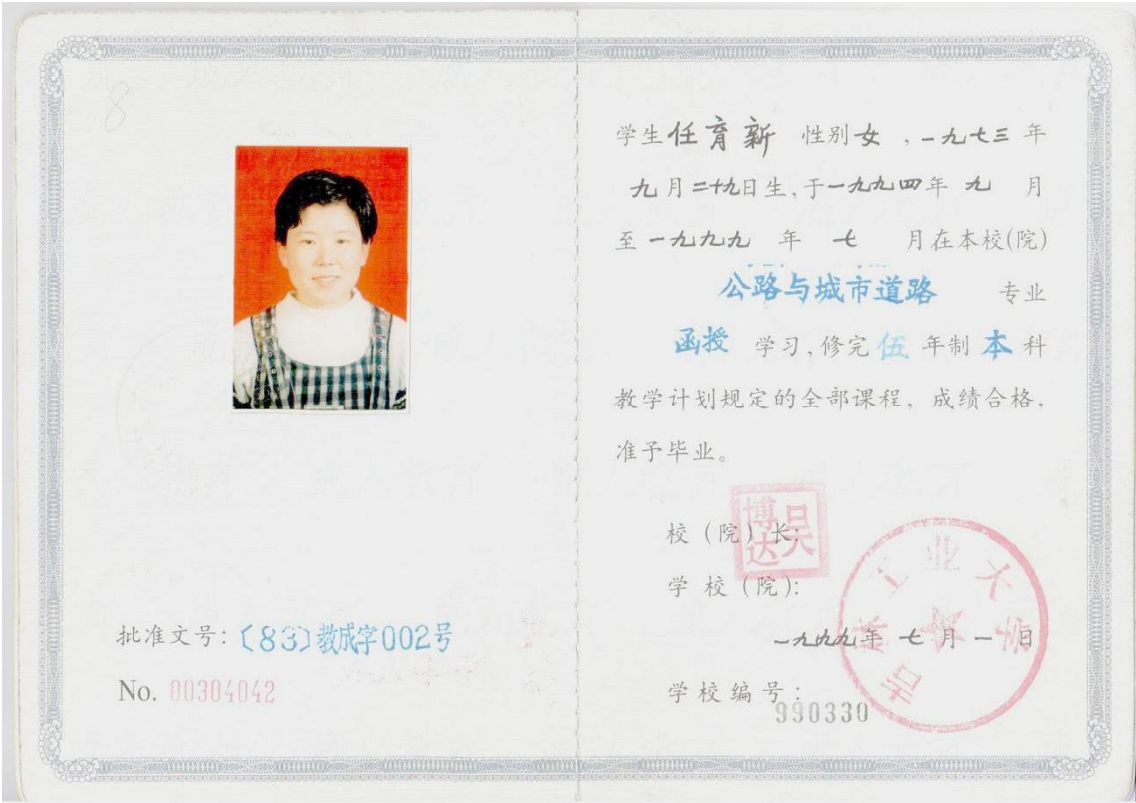 8
批准文号：〔83〕教成字002号
No. 00304042
学生任育新 性别女，一九七三年
九月二十九日生，于一九九四年 九 月
至一九九九 年 七 月在本校(院)
公路与城市道路 专业
函授 学习，修完 伍 年制 本 科
教学计划规定的全部课程，成绩合格，
准予毕业。
校（院）长：
吴博达
学 校（院）：
吉林工业大学
一九九九年 七 月 一 日
学校编号：
990330